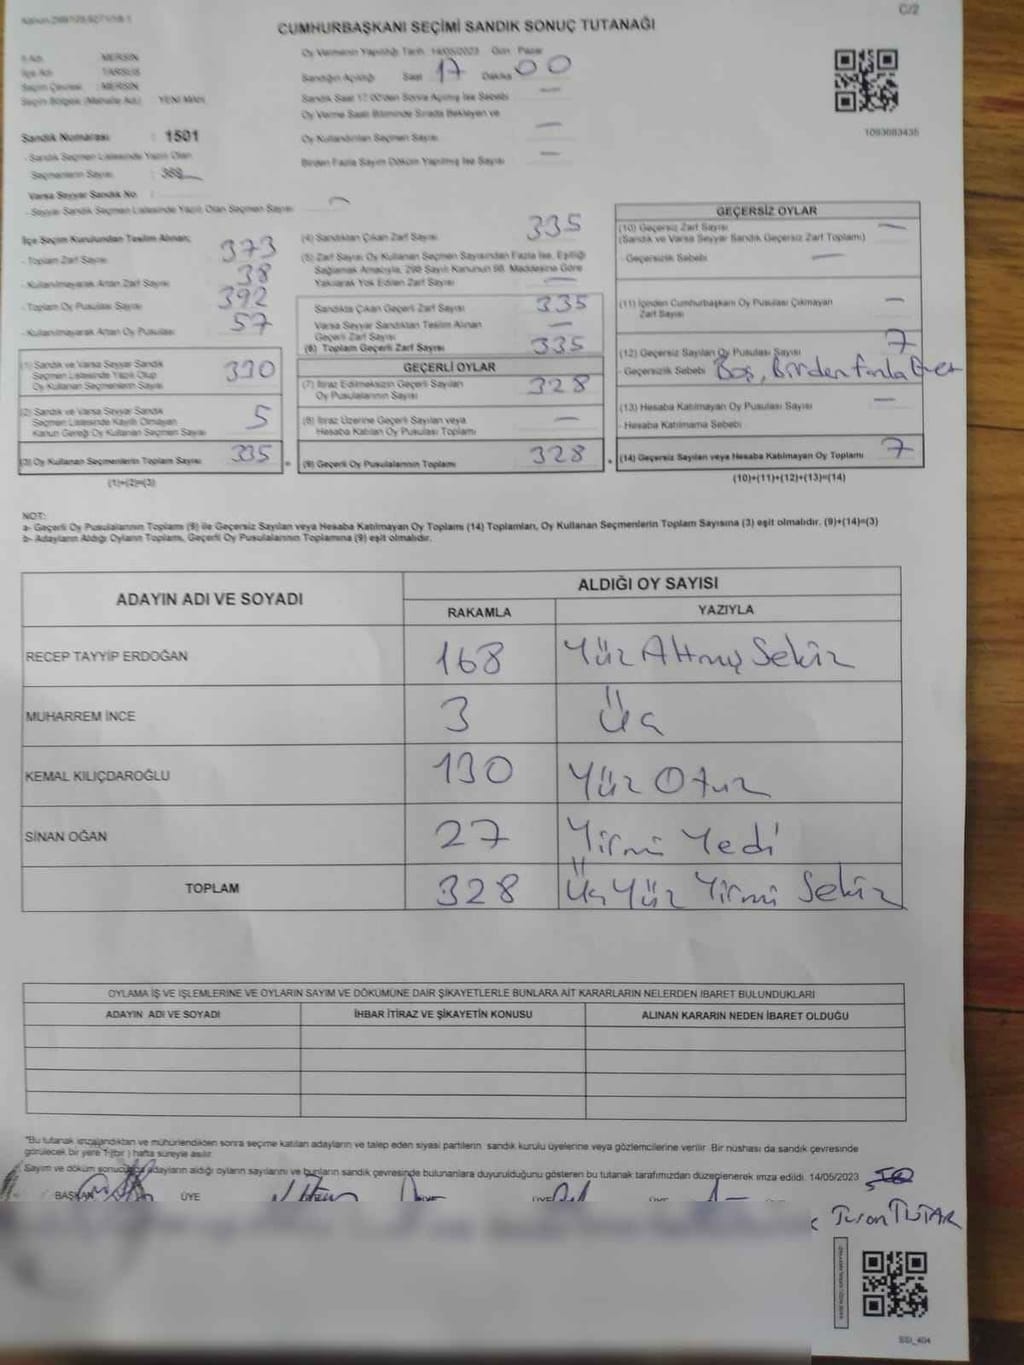 C/2
CUMHURBAŞKANI SEÇİMİ SANDIK SONUÇ TUTANAĞI
İl Adı MERSİN
İlçe Adı TARSUS
Seçim Çevresi : MERSİN
Seçim Bölgesi (Mahalle Adı) YENİ MAH.
Sandık Numarası : 1501
- Sandık Seçmen Listesinde Yazılı Olan
Seçmenlerin Sayısı : 368
Varsa Seyyar Sandık No :
- Seyyar Sandık Seçmen Listesinde Yazılı Olan Seçmen Sayısı —
Oy Vermenin Yapıldığı Tarih 14/05/2023 Gün Pazar
Sandığın Açıldığı Saat 17 Dakika 00
Sandık Saat 17.00'den Sonra Açılmış İse Sebebi —
Oy Verme Saati Bitiminde Sırada Bekleyen ve
Oy Kullandırılan Seçmen Sayısı —
Birden Fazla Sayım Döküm Yapılmış İse Sayısı —
1093083435
İlçe Seçim Kurulundan Teslim Alınan;
- Toplam Zarf Sayısı 373
- Kullanılmayarak Artan Zarf Sayısı 38
- Toplam Oy Pusulası Sayısı 392
- Kullanılmayarak Artan Oy Pusulası 57
(1) Sandık ve Varsa Seyyar Sandık
Seçmen Listesinde Yazılı Olup
Oy Kullanan Seçmenlerin Sayısı 330
(2) Sandık ve Varsa Seyyar Sandık
Seçmen Listesinde Kayıtlı Olmayan
Kanun Gereği Oy Kullanan Seçmen Sayısı 5
(3) Oy Kullanan Seçmenlerin Toplam Sayısı 335 =
(1)+(2)=(3)
(4) Sandıktan Çıkan Zarf Sayısı 335
(5) Zarf Sayısı Oy Kullanan Seçmen Sayısından Fazla İse, Eşitliği
Sağlamak Amacıyla, 298 Sayılı Kanunun 98. Maddesine Göre
Yakılarak Yok Edilen Zarf Sayısı —
Sandıkta Çıkan Geçerli Zarf Sayısı 335
Varsa Seyyar Sandıktan Teslim Alınan
Geçerli Zarf Sayısı —
(6) Toplam Geçerli Zarf Sayısı 335
GEÇERLİ OYLAR
(7) İtiraz Edilmeksizin Geçerli Sayılan
Oy Pusulalarının Sayısı 328
(8) İtiraz Üzerine Geçerli Sayılan veya
Hesaba Katılan Oy Pusulası Toplamı —
(9) Geçerli Oy Pusulalarının Toplamı 328 +
GEÇERSİZ OYLAR
(10) Geçersiz Zarf Sayısı —
(Sandık ve Varsa Seyyar Sandık Geçersiz Zarf Toplamı)
- Geçersizlik Sebebi —
(11) İçinden Cumhurbaşkanı Oy Pusulası Çıkmayan
Zarf Sayısı —
(12) Geçersiz Sayılan Oy Pusulası Sayısı 7
- Geçersizlik Sebebi Boş, Birden fazla Evet
(13) Hesaba Katılmayan Oy Pusulası Sayısı —
- Hesaba Katılmama Sebebi
(14) Geçersiz Sayılan veya Hesaba Katılmayan Oy Toplamı 7
(10)+(11)+(12)+(13)=(14)
NOT:
a- Geçerli Oy Pusulalarının Toplamı (9) ile Geçersiz Sayılan veya Hesaba Katılmayan Oy Toplamı (14) Toplamları, Oy Kullanan Seçmenlerin Toplam Sayısına (3) eşit olmalıdır. (9)+(14)=(3)
b- Adayların Aldığı Oyların Toplamı, Geçerli Oy Pusulalarının Toplamına (9) eşit olmalıdır.
ADAYIN ADI VE SOYADI ALDIĞI OY SAYISI
RAKAMLA YAZIYLA
RECEP TAYYİP ERDOĞAN 168 Yüz Altmış Sekiz
MUHARREM İNCE 3 Üç
KEMAL KILIÇDAROĞLU 130 Yüz Otuz
SİNAN OĞAN 27 Yirmi Yedi
TOPLAM 328 Üç Yüz Yirmi Sekiz
OYLAMA İŞ VE İŞLEMLERİNE VE OYLARIN SAYIM VE DÖKÜMÜNE DAİR ŞİKAYETLERLE BUNLARA AİT KARARLARIN NELERDEN İBARET BULUNDUKLARI
ADAYIN ADI VE SOYADI İHBAR İTİRAZ VE ŞİKAYETİN KONUSU ALINAN KARARIN NEDEN İBARET OLDUĞU
"Bu tutanak imzalandıktan ve mühürlendikten sonra seçime katılan adayların ve talep eden siyasi partilerin sandık kurulu üyelerine veya gözlemcilerine verilir. Bir nüshası da sandık çevresinde
görülecek bir yere 1 (bir) hafta süreyle asılır.
Sayım ve döküm sonucunda adayların aldığı oyların sayılarını ve bunların sandık çevresinde bulunanlara duyurulduğunu gösteren bu tutanak tarafımızdan düzenlenerek imza edildi. 14/05/2023
BAŞKAN ÜYE ÜYE ÜYE
Turan TUTAR
SSI_404